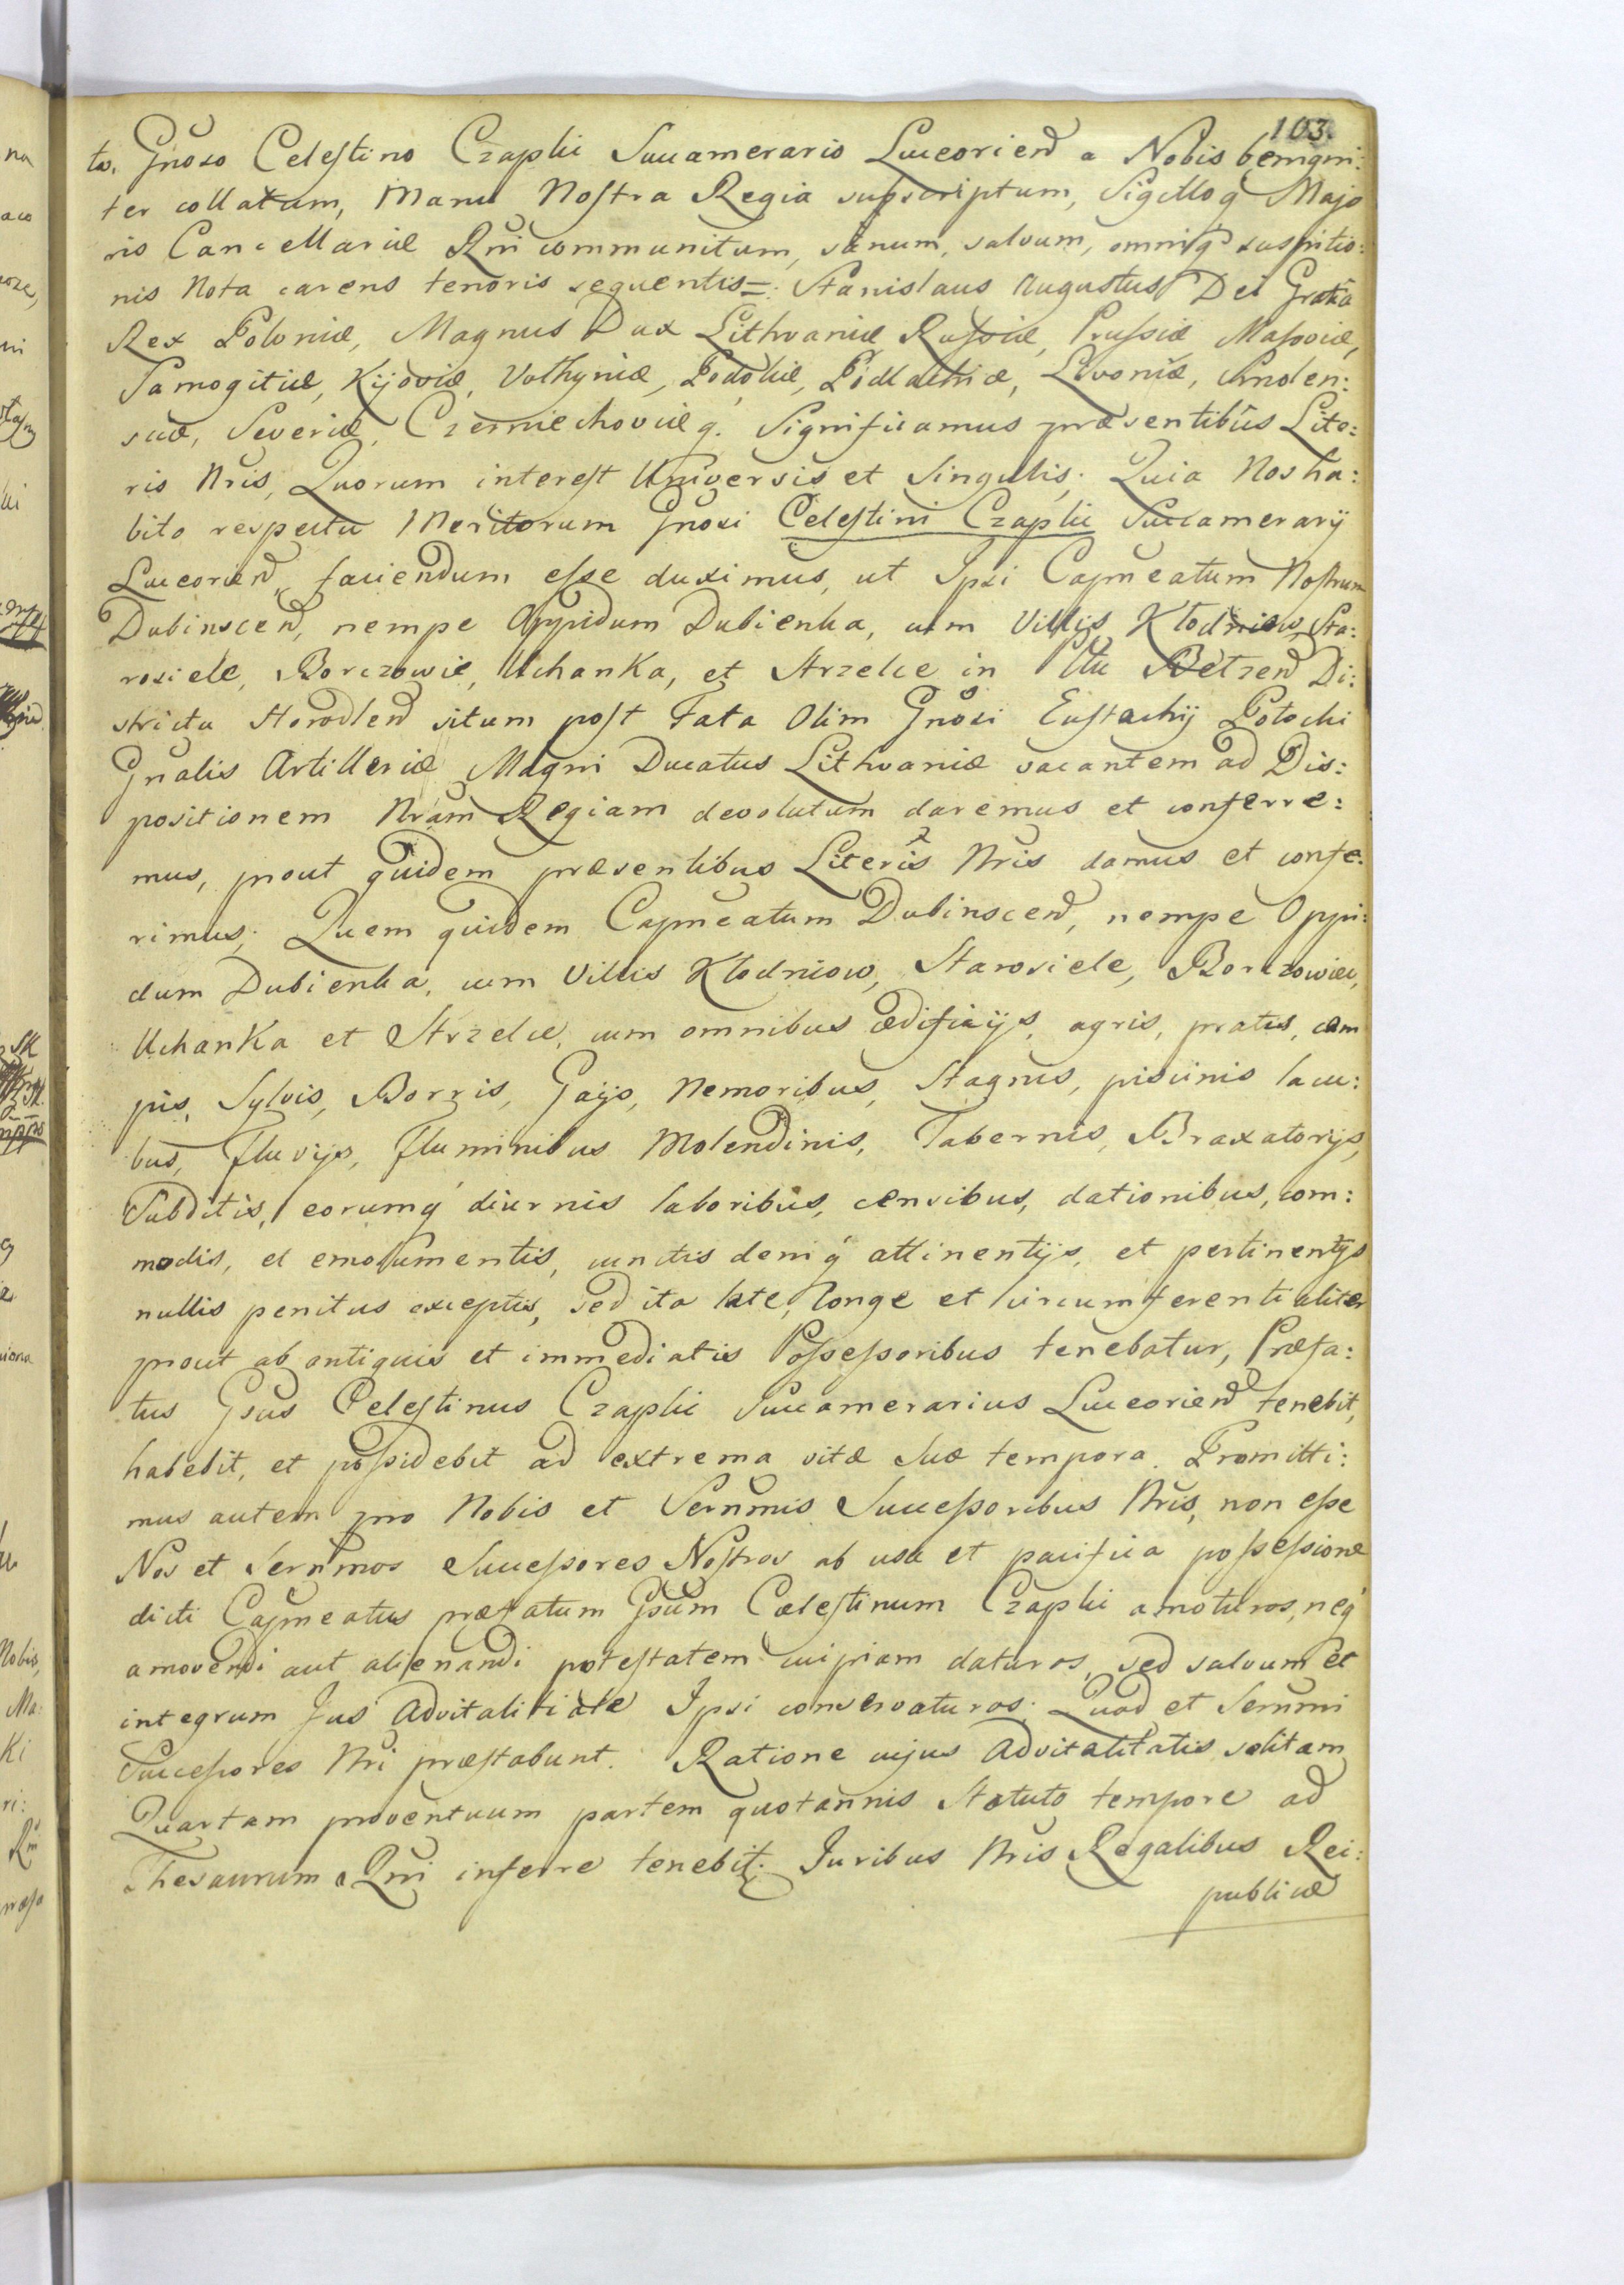 103.
to. Gnoso Celestino Czaplic Succamerario Luceorien a Nobis benigni:
ter collatum, Manu Nostra Regia subscriptum, Sigilloq Majo
ris Cancellariæ Rni communitum, sanum, salvum, omniq suspitio:
nis Nota carens tenoris sequentis =: Stanislaus Augustus Dei Gratia
Rex Poloniæ, Magnus Dux Lithvaniæ Russiæ, Prussiæ Massoviæ,
Samogitiæ, Kijoviæ, Volhyniæ, Podoliæ, Podlachiæ, Livoniæ, Smolen:
sciæ, Severiæ, Czerniechoviæq. Significamus præsentibus Lite:
ris Nris, Quorum interest Universis et Singulis; Quia Nos ha:
bito respectu Meritorum Gnosi Celestini Czaplic Succamerarij
Luceorien, faciendum esse duximus, ut Ipsi Capneatum Nostrum
Dubinscen, nempe Oppidum Dubienka, cum Villijs Kłodniow, Sta:
rosiele, Borczowie, Uchanka, et Strzelce in Pltu Bełzen Di:
strictu Horodlen situm post Fata Olim Gnosi Eustachij Potocki
Gnalis Artilleriæ Magni Ducatus Lithvaniæ vacantem ad Dis:
positionem Nram Regiam devolutum daremus et conferre:
mus, prout quidem præsentibus Literis Nris damus et confe:
rimus; Quem quidem Capneatum Dubinscen, nempe Oppi:
dum Dubienka, cum Villis Kłodniow, Starosiele, Borczowiec,
Uchanka et Strzelce, cum omnibus ædificijs, agris, pratis, cam
pis, Sylvis, Borris, Gajs, Nemoribus, Stagnis, piscinis lacu:
bus, Fluvijs, Fluminibus Molendinis, Tabernis, Braxatorijs,
Subditis, eorumq diurnis laboribus, censibus, dationibus, com:
modis, et emolumentis, cunctis deniq attinentijs, et pertinentijs
nullis penitus exceptis, sed ita late, longe et circumferentialiter
prout ab antiquis et immediatis Possessoribus tenebatur, Præfa:
tus Gsus Celestinus Czaplic Succamerarius Luceorien tenebit,
habebit, et possidebit ad extrema vitæ Suæ tempora. Promitti:
mus autem pro Nobis et Sernmis Successoribus Nris, non esse
Nos et Sernmos Successores Nostros ab usu et pacifica possessione
dicti Capneatus præfatum Gsum Cælestinum Czaplic amoturos, neq
amovendi aut alienandi potestatem cuipiam daturos, sed salvum et
integrum Jus Advitalitiale Ipsi conservaturos; Quod et Sernmi
Successores Nri præstabunt. Ratione cujus Advitalitatis solitam
Quartam proventuum partem quotannis Statuto tempore ad
Thesaurum Rni inferre tenebit; Juribus Nris Regalibus Rei:
publicæ